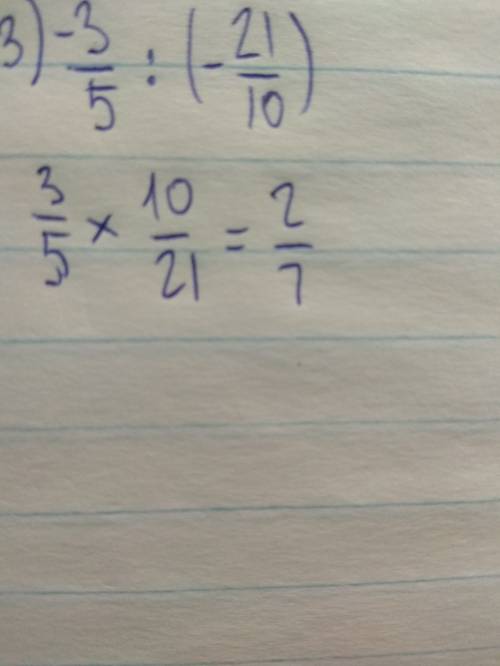 3) -3/5 : (-21/10)
3/5 × 10/21 = 2/7